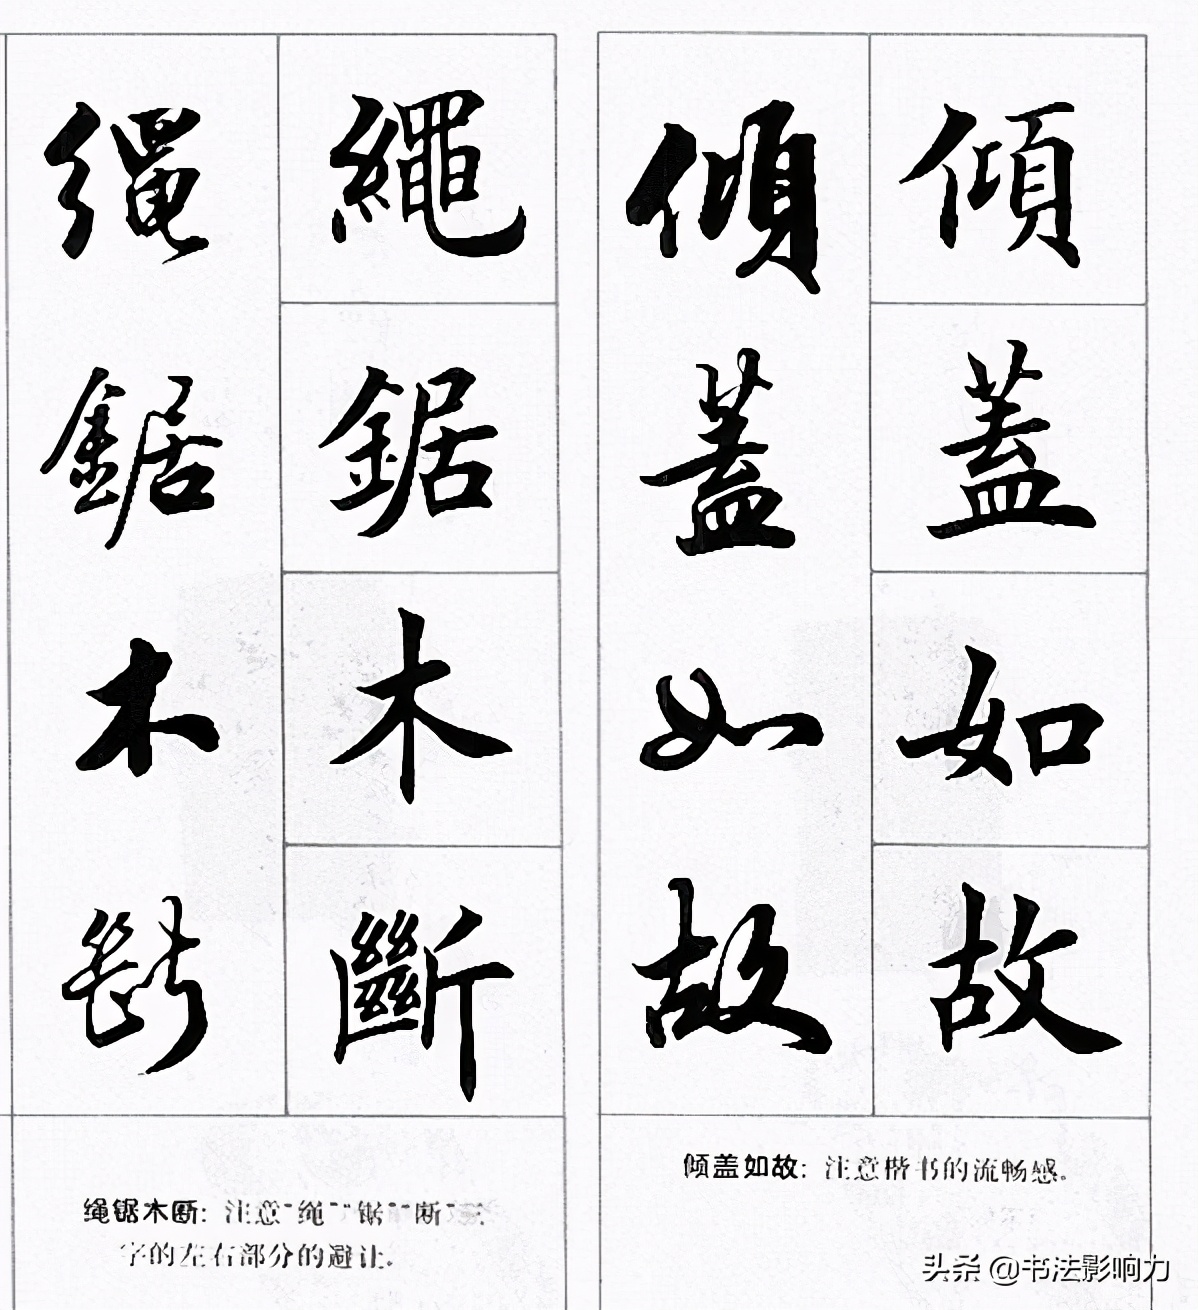 傾蓋如故
傾蓋如故
倾盖如故：注意楷书的流畅感。
繩鋸木斷
繩鋸木斷
绳锯木断：注意“绳”“锯”“断”三
字的左右部分的避让。
头条 @书法影响力